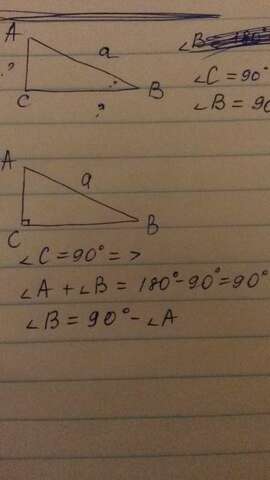 A
a
.?
C
B
?
∠B = 180°
∠C = 90°
∠B = 90
A
a
C
B
∠C = 90° =>
∠A + ∠B = 180° - 90° = 90°
∠B = 90° - ∠A